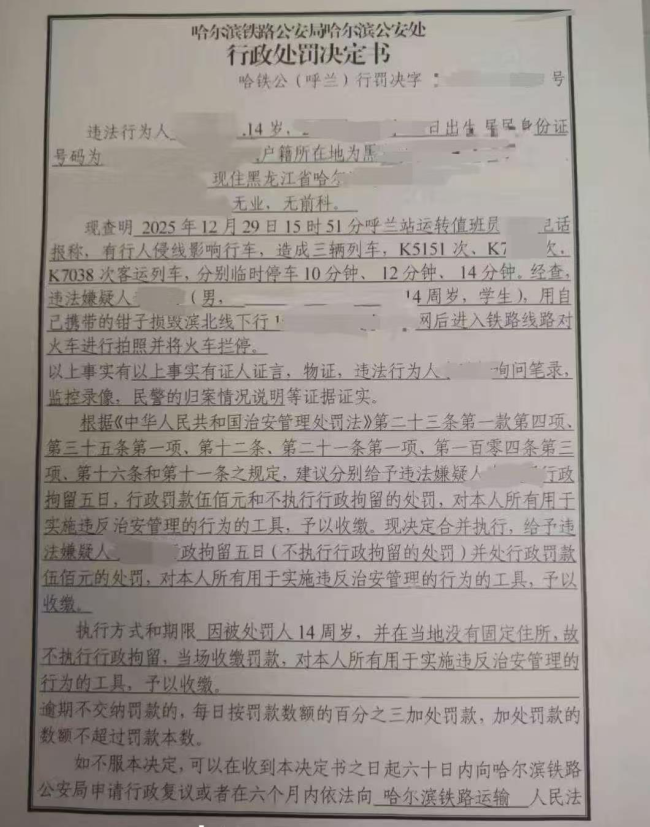 哈尔滨铁路公安局哈尔滨公安处
行政处罚决定书
哈铁公(呼兰)行罚决字 号
违法行为人 ,14岁, 日出生,居民身份证
号码为 ,户籍所在地为黑
现住黑龙江省哈尔
无业,无前科。
现查明 2025年12月29日15时51分呼兰站运转值班员 电话
报称,有行人侵线影响行车,造成三辆列车,K5151次、K7 次、
K7038次客运列车,分别临时停车10分钟、12分钟、14分钟。经查,
违法嫌疑人 (男, 14周岁,学生),用自
己携带的钳子损毁滨北线下行 网后进入铁路线路对
火车进行拍照并将火车拦停。
以上事实有以上事实有证人证言,物证,违法行为人 询问笔录,
监控录像,民警的归案情况说明等证据证实。
根据《中华人民共和国治安管理处罚法》第二十三条第一款第四项、
第三十五条第一项、第十二条、第二十一条第一项、第一百零四条第三
项、第十六条和第十一条之规定,建议分别给予违法嫌疑人 行政
拘留五日,行政罚款伍佰元和不执行行政拘留的处罚,对本人所有用于
实施违反治安管理的行为的工具,予以收缴。现决定合并执行,给予违
法嫌疑人 行政拘留五日(不执行行政拘留的处罚)并处行政罚款
伍佰元的处罚,对本人所有用于实施违反治安管理的行为的工具,予以
收缴。
执行方式和期限 因被处罚人14周岁,并在当地没有固定住所,故
不执行行政拘留,当场收缴罚款,对本人所有用于实施违反治安管理的
行为的工具,予以收缴。
逾期不交纳罚款的,每日按罚款数额的百分之三加处罚款,加处罚款的
数额不超过罚款本数。
如不服本决定,可以在收到本决定书之日起六十日内向哈尔滨铁路
公安局申请行政复议或者在六个月内依法向 哈尔滨铁路运输 人民法